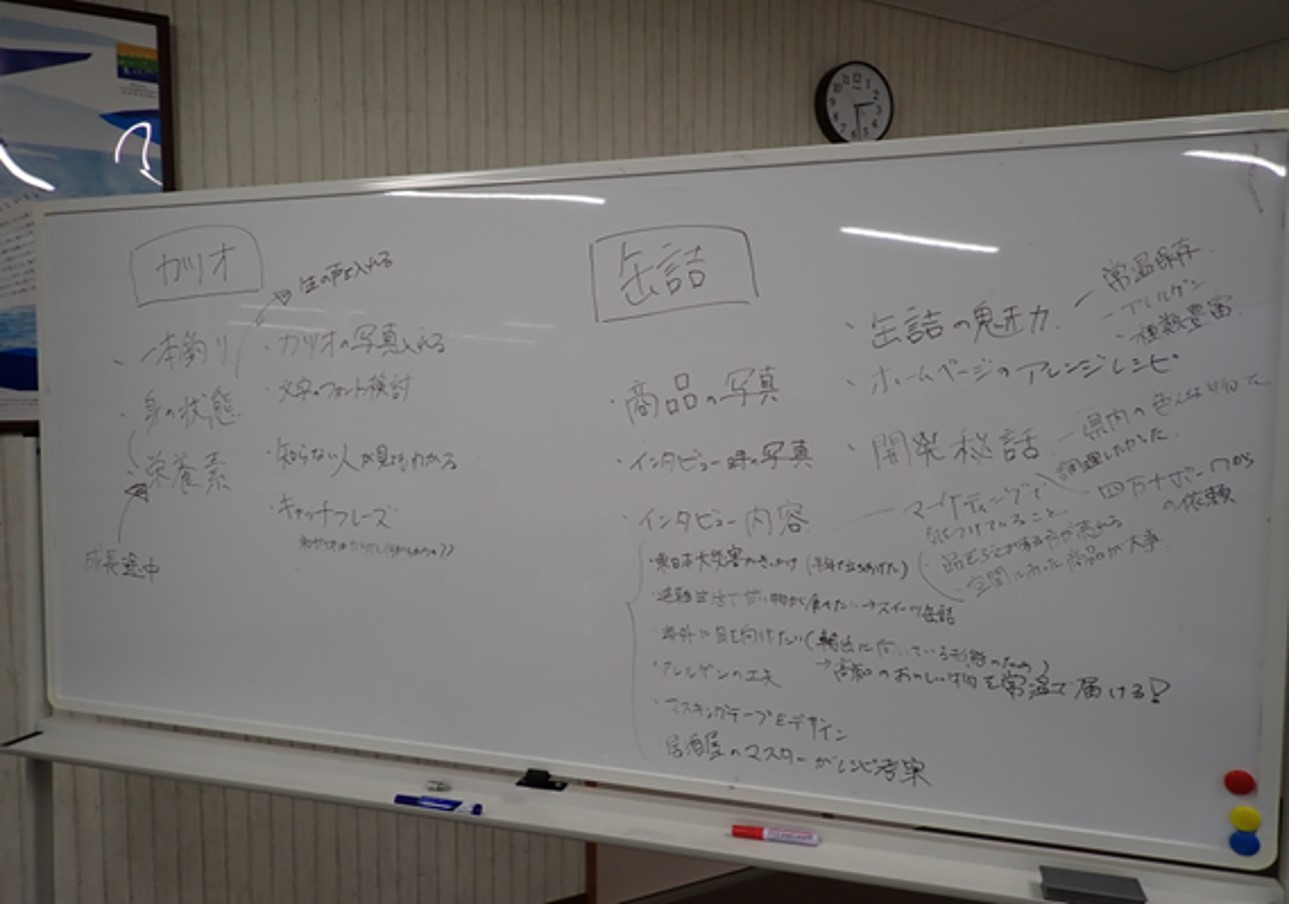 カツオ
生の声を入れる
・一本釣り
・身の状態
・栄養素
成長途中
・カツオの写真入れる
・文字のフォント検討
・知らない人が見てもわかる
・キャッチフレーズ
缶詰
・商品の写真
・インタビュー時の写真
・インタビュー内容
・東日本大災害がきっかけ
・避難生活で甘い物が食べたい→スイーツ缶詰
・海外に目を向けたい(輸出に向いている形態のため)
→高知のおいしい物を常温で届ける!
・アレルゲンの工夫
・マスキングテープもデザイン
・居酒屋のマスターがレシピ考案
・缶詰の魅力
常温保存
アレルゲン
種類豊富
・ホームページのアレンジレシピ
・開発秘話
県内の色んな
調理したかった
四万十
の依頼
マーケティングで
気をつけていること
商品が大事
12 1 2 3 6 7 8 9 10 11